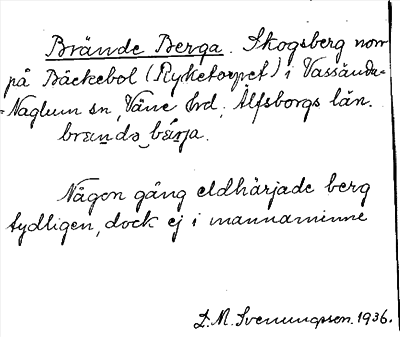 Brände Berga. Skogsberg norr
på Bäckebol (Ryketorpet) i Vassända-
=Naglum sn, Väne hrd, Älfsborgs län.
brandə bärja.
Någon gång eldhärjade berg
tydligen, dock ej i mannaminne
L. M. Svenungsson. 1936.